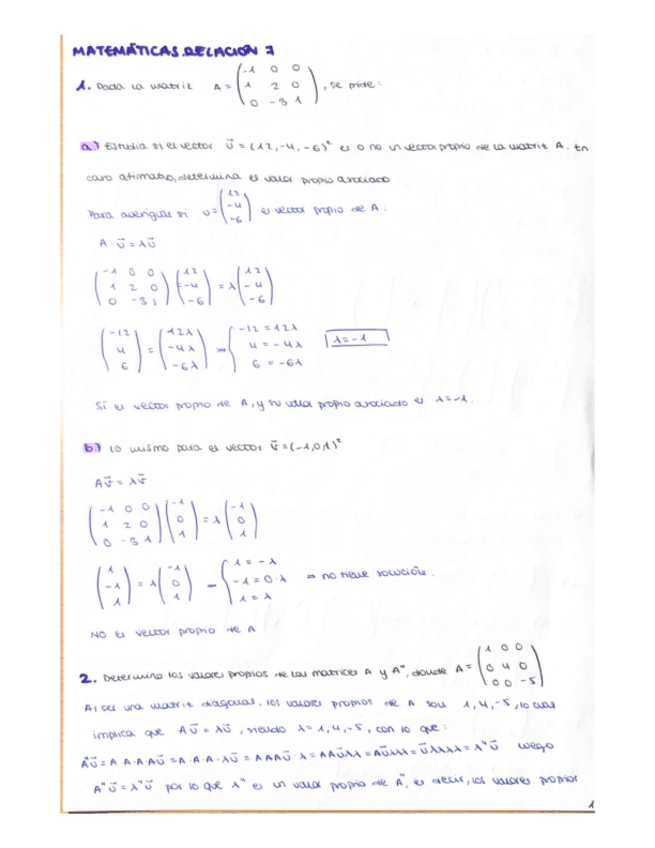 MATEMÁTICAS. RELACIÓN 7
1. Dada la matriz A = (-1 0 0 / 1 2 0 / 0 -3 1), se pide:
a) Estudia si el vector ū = (12, -4, -6)ᵗ es o no un vector propio de la matriz A. En
caso afirmativo, determina el valor propio asociado
Para averiguar si u = (12 / -4 / -6) es vector propio de A:
A · ū = λū
(-1 0 0 / 1 2 0 / 0 -3 1) (12 / -4 / -6) = λ (12 / -4 / -6)
(-12 / 4 / 6) = (12λ / -4λ / -6λ) → { -12 = 12λ / 4 = -4λ / 6 = -6λ λ = -1
Sí es vector propio de A, y su valor propio asociado es λ = -1.
b) Lo mismo para el vector v̄ = (-1,0,1)ᵗ
Av̄ = λv̄
(-1 0 0 / 1 2 0 / 0 -3 1) (-1 / 0 / 1) = λ (-1 / 0 / 1)
(1 / -1 / 1) = λ (-1 / 0 / 1) → { 1 = -λ / -1 = 0·λ / 1 = λ ⇒ no tiene solución.
NO es vector propio de A
2. Determina los valores propios de las matrices A y A⁴, donde A = (1 0 0 / 0 4 0 / 0 0 -5)
Al ser una matriz diagonal, los valores propios de A son 1, 4, -5, lo cual
implica que Aū = λū, siendo λ = 1, 4, -5, con lo que:
A⁴ū = A·A·A·Aū = A·A·A·λū = AAAū·λ = AAūλλ = Aūλλλ = ūλλλλ = λ⁴ū luego
A⁴ū = λ⁴ū por lo que λ⁴ es un valor propio de A⁴, es decir, los valores propios
1